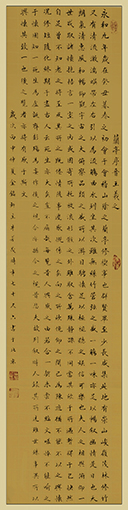 蘭亭序 晉 王羲之
永和九年歲在癸丑暮春之初會于會稽山陰之蘭亭修禊事也群賢畢至少長咸集此地有崇山峻嶺茂林修竹
又有清流激湍映帶左右引以為流觴曲水列坐其次雖無絲竹管弦之盛一觴一詠亦足以暢敘幽情是日也天
朗氣清惠風和暢仰觀宇宙之大俯察品類之盛所以遊目騁懷足以極視聽之娛信可樂也夫人之相與俯仰一
世或取諸懷抱悟言一室之內或因寄所託放浪形骸之外雖趣舍萬殊靜躁不同當其欣於所遇暫得於己快然
自足不知老之將至及其所之既倦情隨事遷感慨係之矣向之所欣俛仰之間已為陳跡猶不能不以之興懷況
修短隨化終期於盡古人云死生亦大矣豈不痛哉每攬昔人興感之由若合一契未嘗不臨文嗟悼不能喻之
於懷固知一死生為虛誕齊彭殤為妄作後之視今亦猶今之視昔悲夫故列敘時人錄其所述雖世殊事異所以
興懷其致一也後之覽者亦將有感於斯文